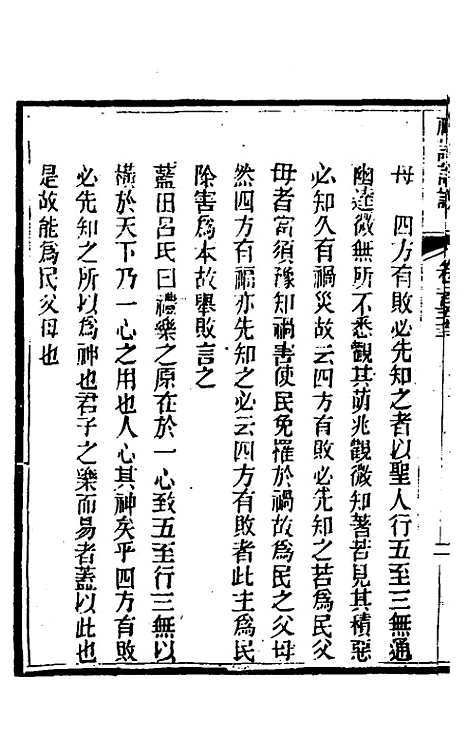 母　四方有敗必先知之者以聖人行五至三無通
幽達微無所不悉觀其萌兆觀微知著若見其積惡
必知久有禍災故云四方有敗必先知之若爲民父
母者當須豫知禍害使民免罹於禍故爲民之父母
然四方有福亦先知之必云四方有敗者此主爲民
除害爲本故舉敗言之
藍田呂氏曰禮樂之原在於一心致五至行三無以
橫於天下乃一心之用也人心其神矣乎四方有敗
必先知之所以爲神也君子之樂而易者蓋以此也
是故能爲民父母也